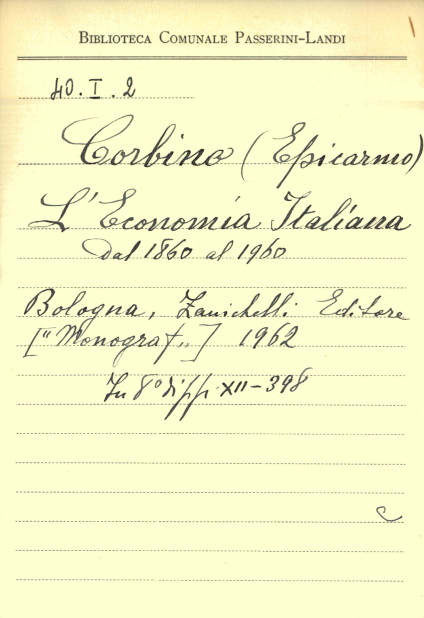 BIBLIOTECA COMUNALE PASSERINI-LANDI
40. I. 2
Corbino (Epicarmo)
L'Economia Italiana
dal 1860 al 1960
Bologna, Zanichelli Editore
["Monograf„] 1962
In 8° di pp. XII-398
C